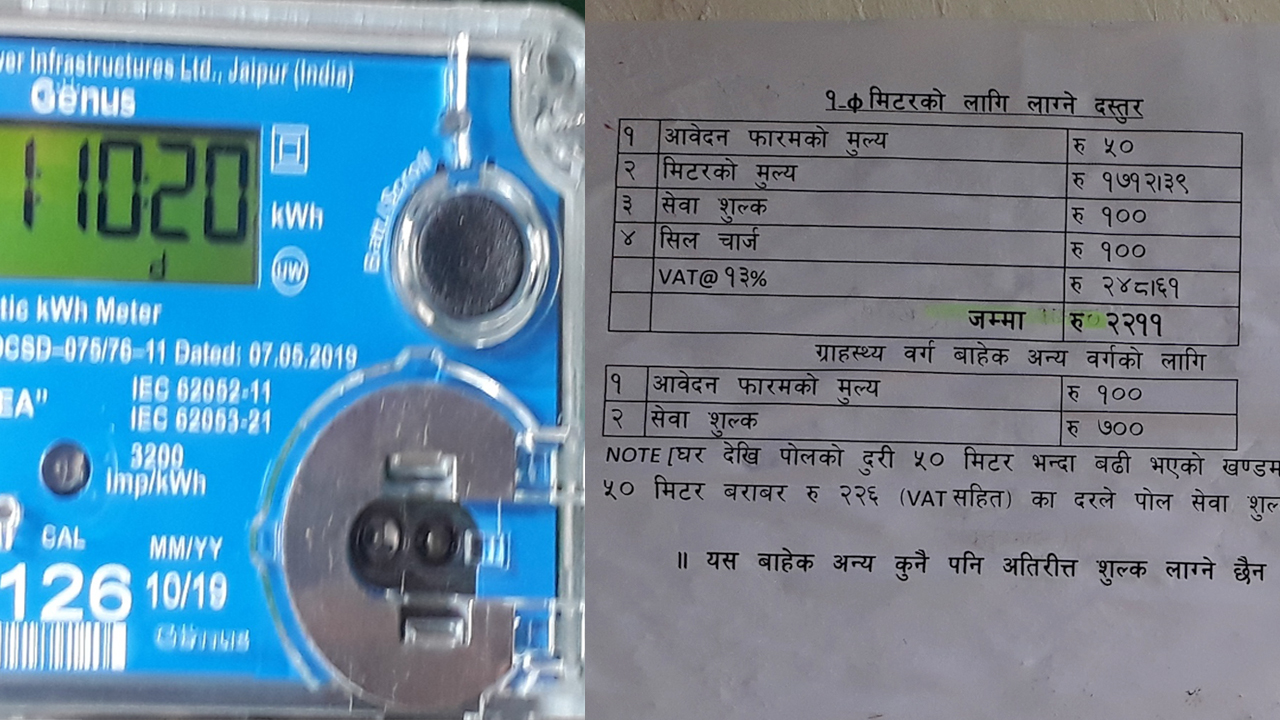 er Infrastructures Ltd., Jaipur (India)
Genus
11020
kWh
d
UW
tic kWh Meter
CSD-075/76-11 Dated: 07.05.2019
EA"
IEC 62052-11
IEC 62053-21
3200
Imp/kWh
CAL
MM/YY
126
10/19
Genus
१-ф मिटरको लागि लाग्ने दस्तुर
१ आवेदन फारमको मुल्य रु ५०
२ मिटरको मुल्य रु १७१२।३९
३ सेवा शुल्क रु १००
४ सिल चार्ज रु १००
VAT@१३% रु २४८।६१
जम्मा रु २२११
ग्राहस्थ्य वर्ग बाहेक अन्य वर्गको लागि
१ आवेदन फारमको मुल्य रु १००
२ सेवा शुल्क रु ७००
NOTE [घर देखि पोलको दुरी ५० मिटर भन्दा बढी भएको खण्डम
५० मिटर बराबर रु २२६ (VAT सहित) का दरले पोल सेवा शुल
॥ यस बाहेक अन्य कुनै पनि अतिरीत्त शुल्क लाग्ने छैन